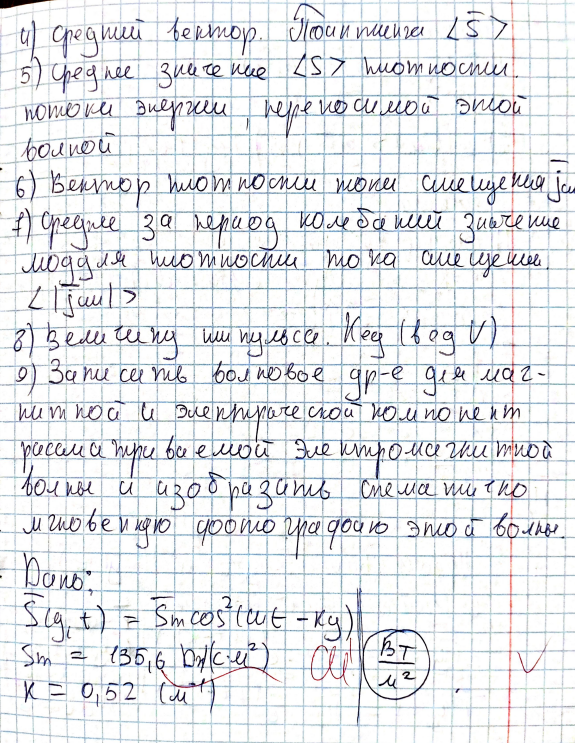 4) Средний вектор. Пойнтинга <S̄>
5) Среднее значение <S> плотности.
потока энергии, переносимой этой
волной
6) Вектор плотности тока смещения j̄см
7) Средне за период колебаний значение
модуля плотности тока смещения.
<|j̄см|>
8) Величину импульса. Кед (в од V)
9) Записать волновое ур-е для маг-
нитной и электрической компонент
рассматриваемой электромагнитной
волны и изобразить схематично
мгновенную фотографию этой волны.
Дано:
S̄(y, t) = S̄m cos²(ωt - ky)
Sm = 135,6 Дж/(с·м²) СИ Вт/м²
K = 0,52 (м⁻¹)